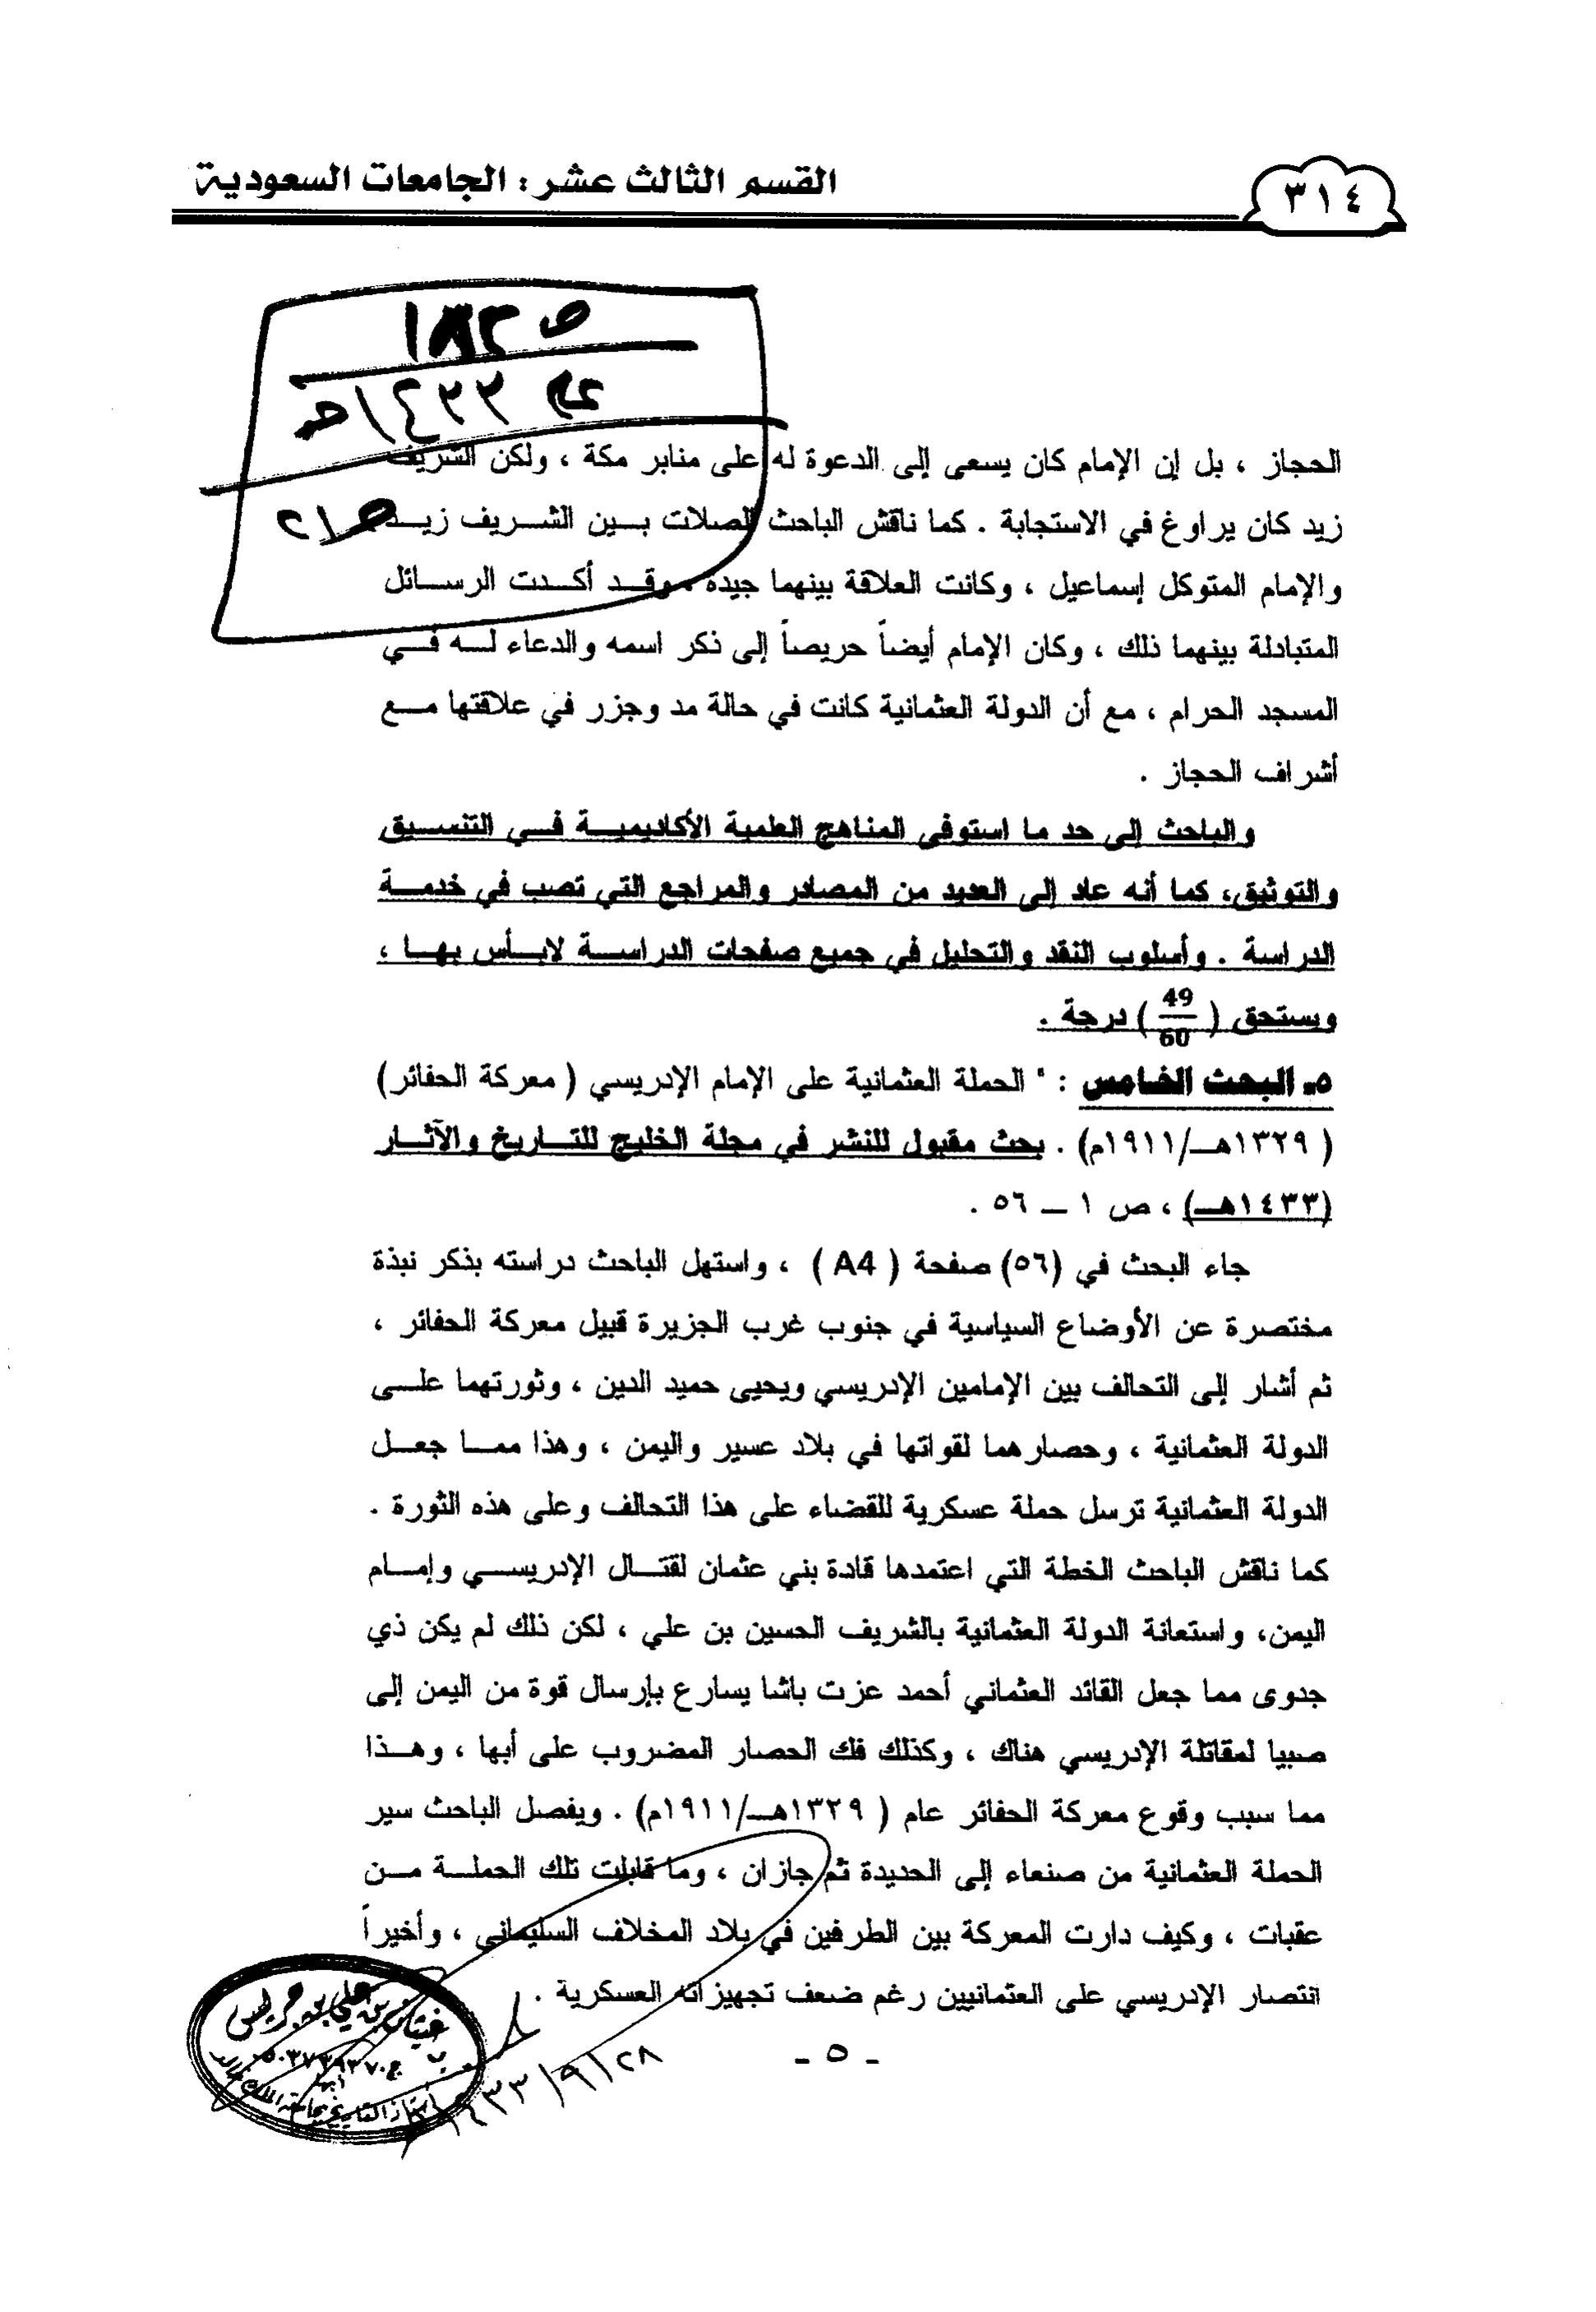 ٣١٤
القسم الثالث عشر : الجامعات السعودية
١٤٣٣هـ
الحجاز ، بل إن الإمام كان يسعى إلى الدعوة له على منابر مكة ، ولكن الشريف
زيد كان يراوغ في الاستجابة . كما ناقش الباحث الصلات بـــين الشـــريف زيـــد
والإمام المتوكل إسماعيل ، وكانت العلاقة بينهما جيدة ، وقـــد أكـــدت الرســـائل
المتبادلة بينهما ذلك ، وكان الإمام أيضاً حريصاً إلى ذكر اسمه والدعاء لـــه فـــي
المسجد الحرام ، مع أن الدولة العثمانية كانت في حالة مد وجزر في علاقتها مـــع
أشراف الحجاز .
والباحث إلى حد ما استوفى المناهج العلمية الأكاديميـــة فـــي التنســـيق
والتوثيق، كما أنه عاد إلى العديد من المصادر والمراجع التي تصب في خدمـــة
الدراسة . وأسلوب النقد والتحليل في جميع صفحات الدراســـة لابـــأس بهـــا ،
ويستحق ( 49/60 ) درجة .
٥- البحث الخامس : " الحملة العثمانية على الإمام الإدريسي ( معركة الحفائر)
( ١٣٢٩هـ/١٩١١م) . بحث مقبول للنشر في مجلة الخليج للتـــاريخ والآثـــار
(١٤٣٣هـ) ، ص ١ – ٥٦ .
جاء البحث في (٥٦) صفحة ( A4 ) ، واستهل الباحث دراسته بذكر نبذة
مختصرة عن الأوضاع السياسية في جنوب غرب الجزيرة قبيل معركة الحفائر ،
ثم أشار إلى التحالف بين الإمامين الإدريسي ويحيى حميد الدين ، وثورتهما علـــى
الدولة العثمانية ، وحصارهما لقواتها في بلاد عسير واليمن ، وهذا ممـــا جعـــل
الدولة العثمانية ترسل حملة عسكرية للقضاء على هذا التحالف وعلى هذه الثورة .
كما ناقش الباحث الخطة التي اعتمدها قادة بني عثمان لقتـــال الإدريســـي وإمـــام
اليمن، واستعانة الدولة العثمانية بالشريف الحسين بن علي ، لكن ذلك لم يكن ذي
جدوى مما جعل القائد العثماني أحمد عزت باشا يسارع بإرسال قوة من اليمن إلى
صبيا لمقاتلة الإدريسي هناك ، وكذلك فك الحصار المضروب على أبها ، وهـــذا
مما سبب وقوع معركة الحفائر عام ( ١٣٢٩هـ/١٩١١م) . ويفصل الباحث سير
الحملة العثمانية من صنعاء إلى الحديدة ثم جازان ، وما قابلت تلك الحملـــة مـــن
عقبات ، وكيف دارت المعركة بين الطرفين في بلاد المخلاف السليماني ، وأخيراً
انتصار الإدريسي على العثمانيين رغم ضعف تجهيزاته العسكرية .
- ٥ -
١٤٣٣/٩/٢٨
غيثان بن علي بن جريس
أبها
أستاذ التاريخ بجامعة الملك خالد